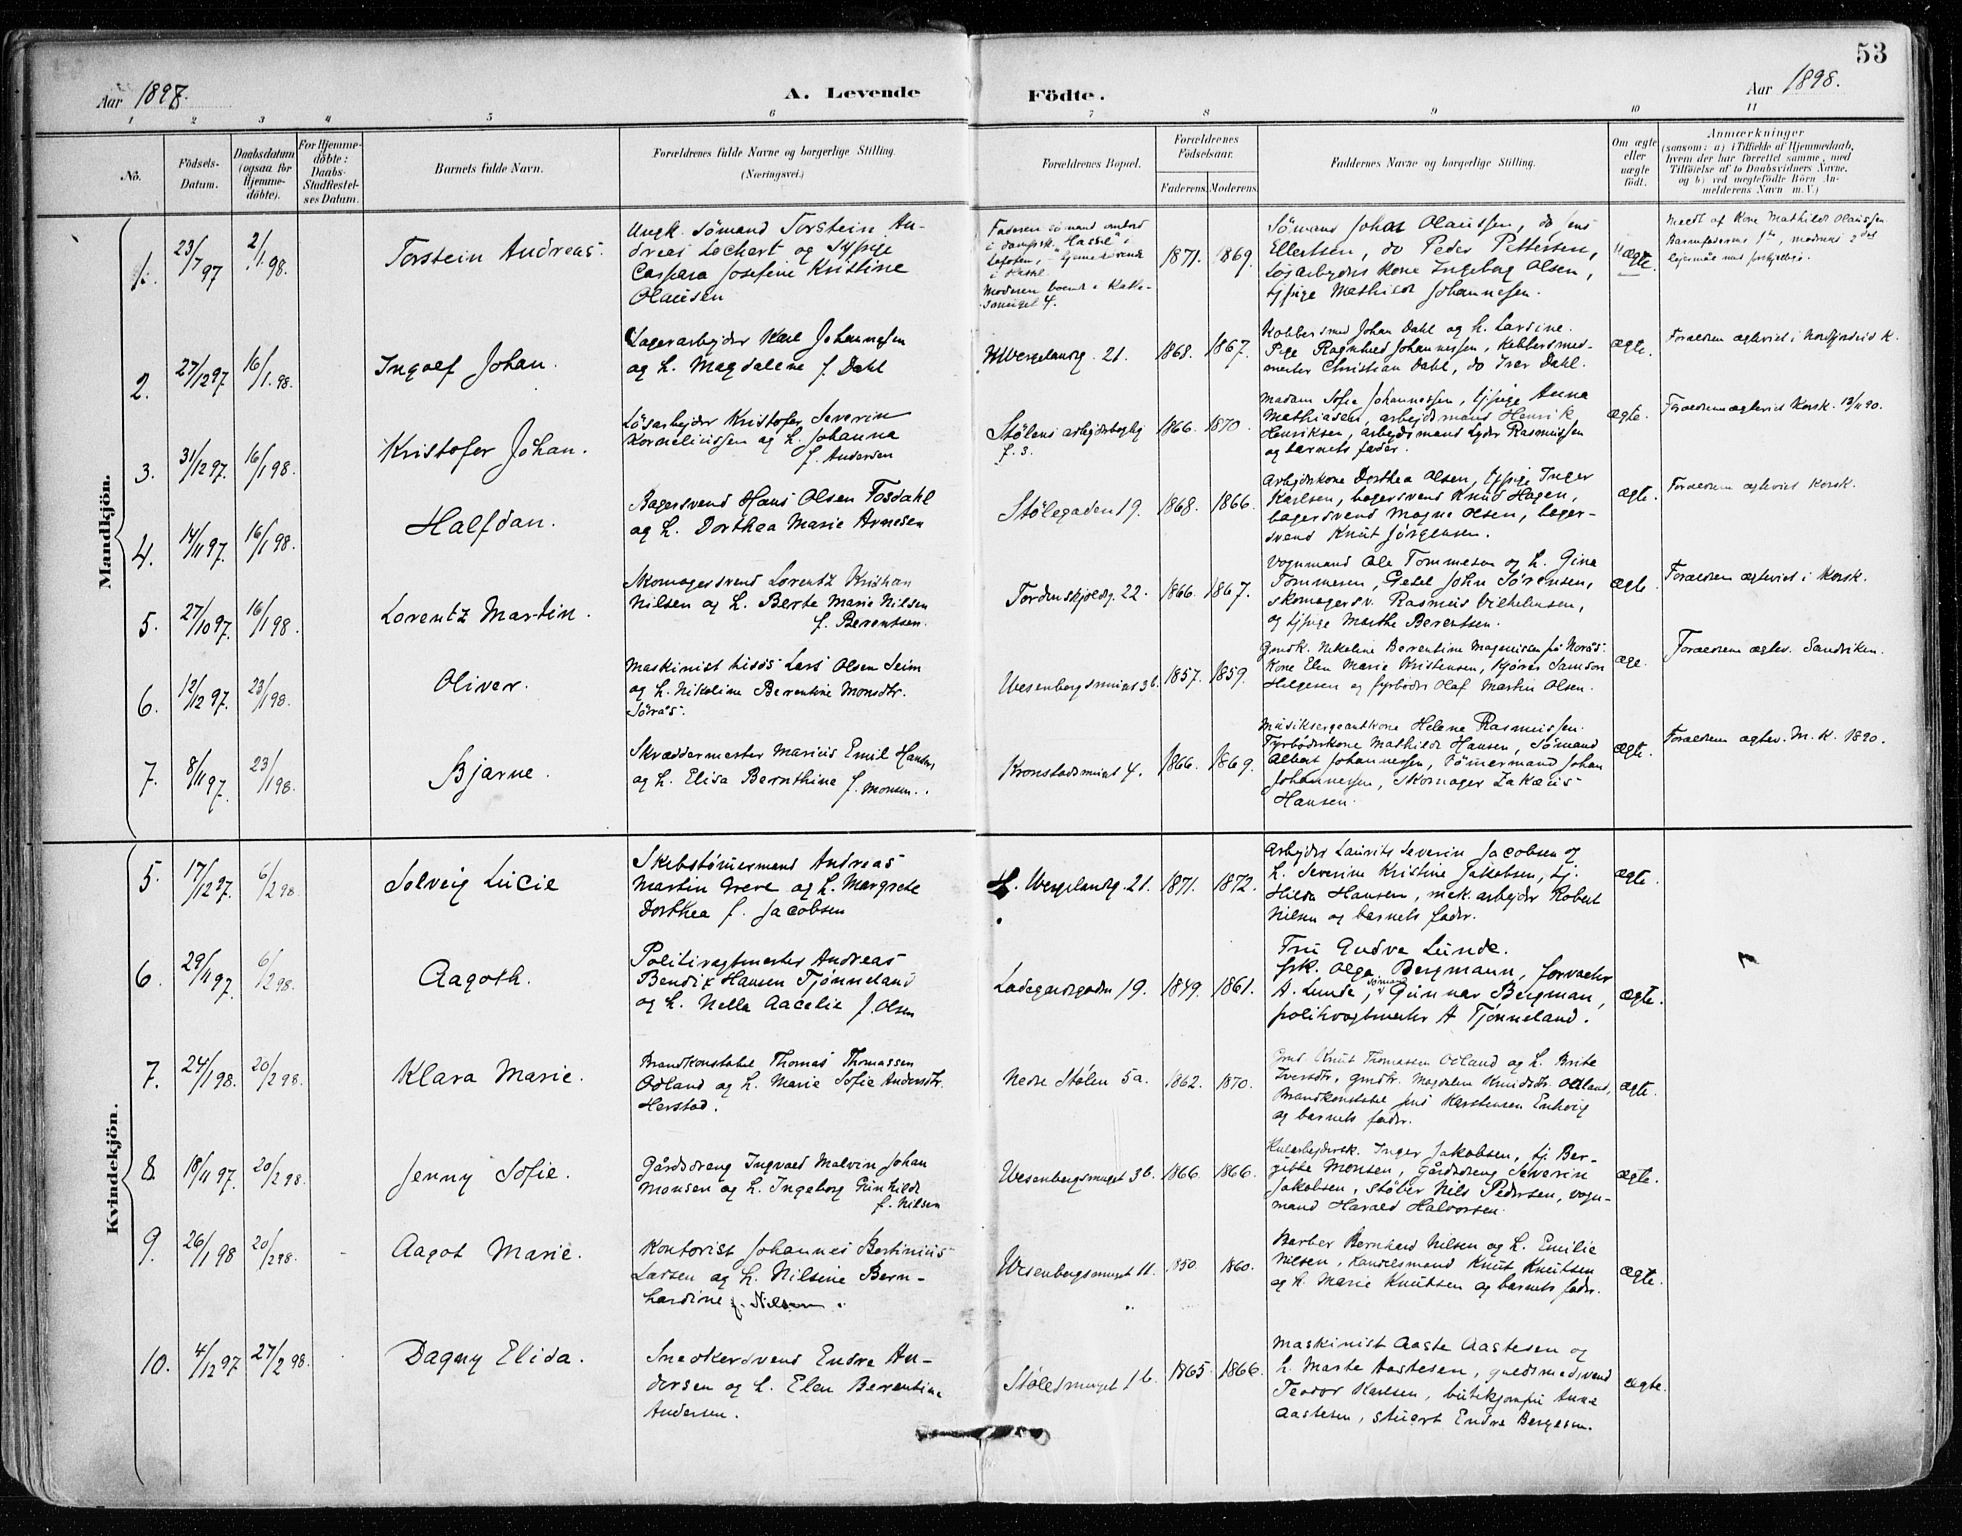 53
Aar 1898.
A. Levende
Födte.
Aar 1898.
1 2 3 4 5 6 7 8 9 10 11
No.
Födsels-
Datum.
Daabsdatum
(ogsaa for
Hjemme-
döbte).
For Hjemme-
döbte:
Daabs-
Stadfæstel-
ses Datum.
Barnets fulde Navn.
Forældrenes fulde Navne og borgerlige Stilling.
(Næringsvei.)
Forældrenes Bopæl.
Forældrenes
Födselsaar.
Faderens. Moderens.
Faddernes Navne og borgerlige Stilling.
Om ægte
eller
uægte
födt.
Anmærkninger
(saasom: a) i Tilfælde af Hjemmedaab,
hvem der har forrettet samme, med
Tilföielse af to Daabsvidners Navne,
og b) ved uægtefödte Börn An-
melderens Navn m. V.)
Mandkjön.
1.
23/7 97
2/1 98.
Torstein Andreas.
Ungk. Sømand Torstein An-
dreas Lechert og Tj.pige
Caspara Josefine Kristine
Olausen
Faderen sømand ombord
i dampsk. "Hassel" i
Moderen boende i Katte-
smuget 4.
1871. 1869.
Sømand Johan Olaussen, do Jens
Ellertsen, do Peder Pettersen,
Løsarbeiders kone Ingeborg Olsen,
tj.pige Mathilde Johannesen.
uægte.
Meldt af Kone Mathilde Olaussen
Barnefaderens 1ste, moderens 2det
leiermål med forskjellige.
2.
27/12 97
16/1 98.
Ingolf Johan.
Lagerarbeider Karl Johannesen
og H. Magdalene f. Dahl
Wergelandsg. 21.
1868. 1867.
Kobbersmed Johan Dahl og H. Larsine.
Pige Ragnhild Johannessen, Kobbersmed-
mester Christian Dahl, do Iver Dahl.
ægte.
Forældrene ægteviet i Nordfjordeid K.
3.
31/12 97.
16/1 98.
Kristofer Johan.
Løsarbeider Kristofer Severin
Korneliussen og H. Johanna
f. Andersen
Stølens arbeiderbolig
f. 3.
1866. 1870.
Madam Sofie Johannessen, tj.pige Anna
Mathiasen, arbeidsmand Henrik
Henriksen, arbeidsmand Lyder Rasmussen
og barnets fader.
ægte.
Forældrene ægteviet Korsk. 12/11 90.
4.
14/11 97.
16/1 98.
Halfdan.
Bagersvend Hans Olsen Fosdahl
og H. Dorthea Marie Arnesen
Stølegaden 19.
1868. 1866.
Arbeiderkone Dorthea Olsen, tj.pige Inger
Karlsen, bagersvend Knud Hagen,
bagersvend Magne Olsen, bager-
svend Knut Jørgensen.
ægte.
Forældrene ægteviet Korsk.
5.
27/10 97.
16/1 98.
Lorentz Martin.
Skomagersvend Lorentz Kristian
Nilsen og H. Berte Marie Nilsen
f. Berentsen.
Tordenskjoldsg. 22.
1866. 1867.
Vognmand Ole Tommesen og H. Gina
Tommesen, John Sørensen,
skomagersv. Rasmus Vilhelmsen,
og tj.pige Marthe Berentsen.
ægte.
Forældrene ægteviet i Korsk.
6.
12/12 97.
23/1 98.
Oliver.
Maskinist Lars Olsen Seim
og H. Nikoline Berentine Monsdtr.
Sørås.
Wesenbergsmuget 3b.
1857. 1859.
Gmdk. Nikoline Berentine Magnussen på Norås.
Kone Elen Marie Kristensen, Kjøren Samson
Helgesen og fyrbøder Olaf Martin Olsen.
æge.
Forældrene ægtev. Sandviken.
7.
8/11 97.
23/1 98.
Bjarne.
Skræddermester Marius Emil Hansen
og H. Elisa Bernthine f. Monsen.
Kronstadsmuget 4.
1866. 1869.
Musiksergeantkone Helene Rasmussen.
Fyrbøderkone Mathilde Hansen, Sømand
Albert Johannessen, Tømermand Johan
Johannessen, Skomager Zakæus
Hansen.
ægte.
Forældrene ægtev. M. K. 1890.
Kvindekjön.
5.
17/12 97.
6/2 98
Solveig Lucie
Skibstømermand Andreas
Martin Greve og H. Margrete
Dorthea f. Jacobsen
H. Wergelandsg. 21.
1871. 1872.
Arbeider Laurits Severin Jacobsen og
H. Severine Kristine Jakobsen, tj.
Hilda Hansen, mek. arbeider Robert
Nilsen og barnets fader.
ægte.
6.
29/11 97.
6/2 98.
Aagoth.
Politivagtmester Andreas
Bendix Hansen Tjønneland
og H. Nella Aacelie f. Olsen
Ladegårdsgaden 19.
1849. 1861.
Fru Gudva Lunde.
frk. Olga Bergmann, forvalter
A. Lunde, sømand Gunnar Bergman,
politivagtmester A Tjønneland.
ægte.
7.
24/1 98.
20/2 98.
Klara Marie.
Brandkonstabel Thomas Thomassen
Odland og H. Marie Sofie Andersdtr.
Herstad.
Nedre Stølen 5a.
1862. 1870.
Gmd Knut Thomassen Odland og H. Brite
Iversdtr., gmdtr. Magdalena Knudsdtr. Odland,
Brandkonstabel Jens Karstensen
og barnets fader.
ægte.
8.
18/11 97.
20/2 98.
Jenny Sofie.
Gårdsdreng Ingvald Malvin Johan
Monsen og H. Ingeborg Gunhilde
f. Nilsen
Wesenbergsmuget 3b.
1866. 1866.
Kularbeidersk. Inger Jakobsen, tj. Ber-
gitte Monsen, Gårdsdreng Severin
Jakobsen, støber Nils Pedersen, vogn-
mand Harald Halvorsen.
ægte.
9.
26/1 98
20/2 98.
Aagot Marie.
Kontorist Johannes Bertinius
Larsen og H. Nilsine Bern-
hardine f. Nilsen.
Wesenbergsmuget 11.
1850. 1860.
Barber Bernhard Nilsen og H. Emilie
Nilsen, Handelsmand Knut Knutsen
og H. Marie Knutsen og barnets fader.
ægte.
10.
4/12 97
27/2 98.
Dagny Elida.
Snedkersvend Endre An-
dersen og H. Elen Berentine
Andersen.
Stølesmuget 1b.
1865 1866.
Maskinist Aaste Aastesen og
H. Marte Aastesen, guldsmedsvend
Teodor Karlsen, butikjomfru Anna
Aastesen, stuert Endre Bergesen.
ægte.